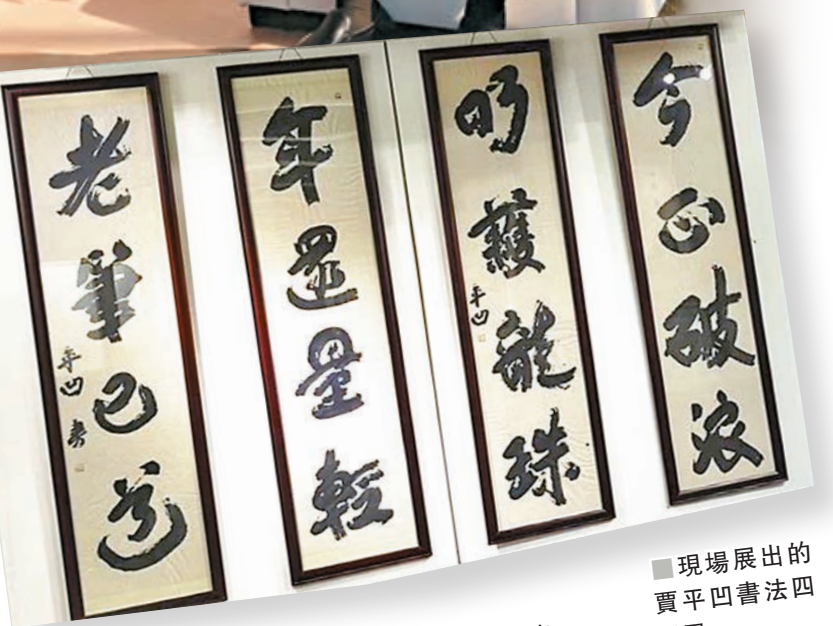 今正破浪
護龍珠
平凹
年還量輕
老筆已
平凹書
■現場展出的
賈平凹書法四